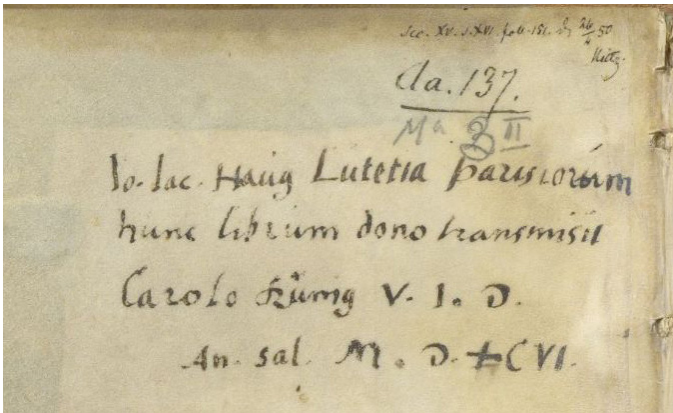 Sec. XV. s. XVI. fol. 151.
Aa. 137.
Ma 3 II
Io. Iac. Haug Lutetia parisiorum
hunc librum dono transmisit
Carolo Künig V. I. D.
An. sal. M. D. XCVI.